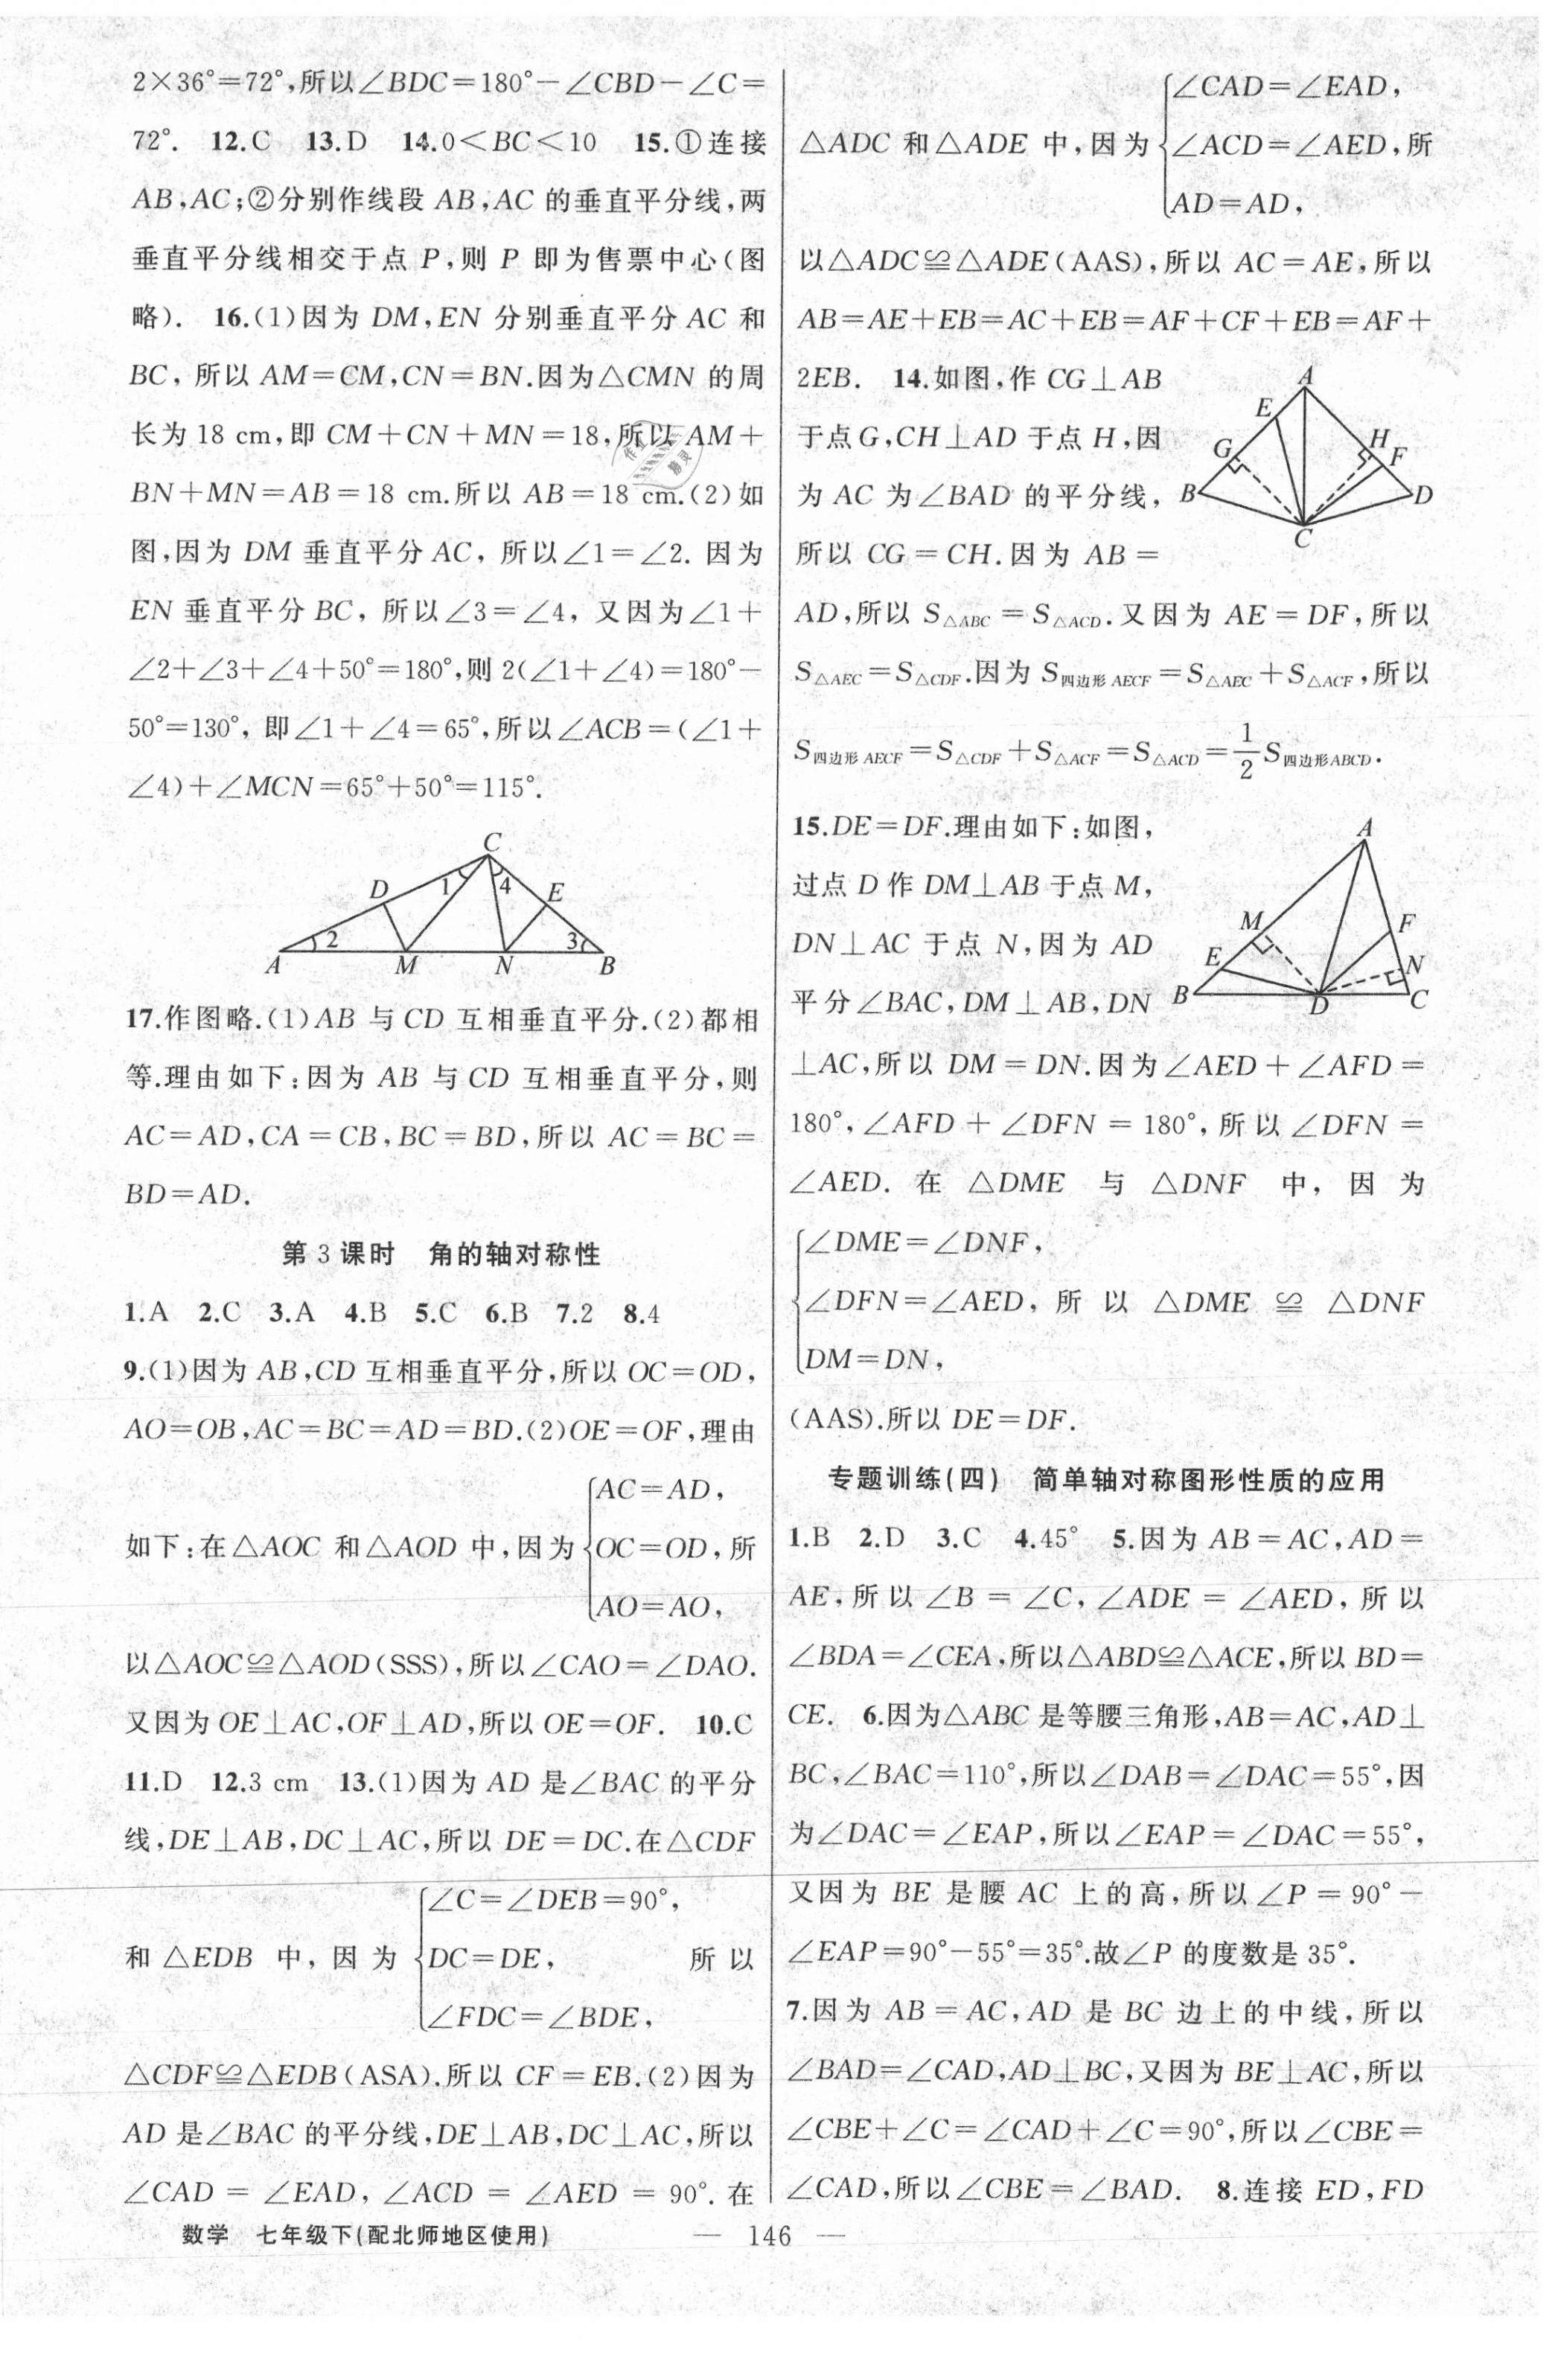 2×36°=72°,所以∠BDC=180°-∠CBD-∠C=
72°. 12.C 13.D 14.0<BC<10 15.①连接
AB,AC;②分别作线段 AB,AC 的垂直平分线,两
垂直平分线相交于点 P,则 P 即为售票中心(图
略). 16.(1)因为 DM,EN 分别垂直平分 AC 和
BC, 所以 AM=CM,CN=BN.因为△CMN 的周
长为 18 cm,即 CM+CN+MN=18,所以 AM+
BN+MN=AB=18 cm.所以 AB=18 cm.(2)如
图,因为 DM 垂直平分 AC, 所以∠1=∠2. 因为
EN 垂直平分 BC, 所以∠3=∠4, 又因为∠1+
∠2+∠3+∠4+50°=180°,则 2(∠1+∠4)=180°-
50°=130°, 即∠1+∠4=65°,所以∠ACB=(∠1+
∠4)+∠MCN=65°+50°=115°.
C
D 1 4 E
2 3
A M N B
17.作图略.(1)AB 与 CD 互相垂直平分.(2)都相
等.理由如下:因为 AB 与 CD 互相垂直平分,则
AC=AD,CA=CB,BC=BD,所以 AC=BC=
BD=AD.
第 3 课时 角的轴对称性
1.A 2.C 3.A 4.B 5.C 6.B 7.2 8.4
9.(1)因为 AB,CD 互相垂直平分,所以 OC=OD,
AO=OB,AC=BC=AD=BD.(2)OE=OF,理由
AC=AD,
如下:在△AOC 和△AOD 中,因为 OC=OD,所
AO=AO,
以△AOC≌△AOD(SSS),所以∠CAO=∠DAO.
又因为 OE⊥AC,OF⊥AD,所以 OE=OF. 10.C
11.D 12.3 cm 13.(1)因为 AD 是∠BAC 的平分
线,DE⊥AB,DC⊥AC,所以 DE=DC.在△CDF
∠C=∠DEB=90°,
和 △EDB 中, 因 为 DC=DE, 所 以
∠FDC=∠BDE,
△CDF≌△EDB(ASA).所以 CF=EB.(2)因为
AD 是∠BAC 的平分线,DE⊥AB,DC⊥AC,所以
∠CAD = ∠EAD, ∠ACD = ∠AED = 90°. 在
∠CAD=∠EAD,
△ADC 和△ADE 中,因为 ∠ACD=∠AED,所
AD=AD,
以△ADC≌△ADE(AAS),所以 AC=AE,所以
AB=AE+EB=AC+EB=AF+CF+EB=AF+
2EB. 14.如图,作 CG⊥AB
于点G,CH⊥AD 于点 H,因
为 AC 为∠BAD 的平分线,
所以 CG=CH.因为 AB=
A
E
G H F
B D
C
AD,所以 S△ABC=S△ACD.又因为 AE=DF,所以
S△AEC=S△CDF.因为 S四边形 AECF=S△AEC+S△ACF,所以
S四边形 AECF=S△CDF+S△ACF=S△ACD=1/2 S四边形ABCD.
15.DE=DF.理由如下:如图,
过点 D 作 DM⊥AB 于点 M,
DN⊥AC 于点 N,因为 AD
平分∠BAC,DM⊥AB,DN
A
M F
E N
B D C
⊥AC,所以 DM=DN.因为∠AED+∠AFD=
180°,∠AFD + ∠DFN = 180°, 所以∠DFN =
∠AED. 在 △DME 与 △DNF 中, 因 为
∠DME=∠DNF,
∠DFN=∠AED, 所 以 △DME ≌ △DNF
DM=DN,
(AAS).所以 DE=DF.
专题训练(四) 简单轴对称图形性质的应用
1.B 2.D 3.C 4.45° 5.因为 AB=AC,AD=
AE,所以∠B = ∠C,∠ADE = ∠AED, 所以
∠BDA=∠CEA,所以△ABD≌△ACE,所以 BD=
CE. 6.因为△ABC 是等腰三角形,AB=AC,AD⊥
BC,∠BAC=110°,所以∠DAB=∠DAC=55°,因
为∠DAC=∠EAP,所以∠EAP=∠DAC=55°,
又因为 BE 是腰 AC 上的高,所以∠P=90°-
∠EAP=90°-55°=35°.故∠P 的度数是 35°.
7.因为 AB=AC,AD 是 BC 边上的中线,所以
∠BAD=∠CAD,AD⊥BC,又因为 BE⊥AC,所以
∠CBE+∠C=∠CAD+∠C=90°,所以∠CBE=
∠CAD,所以∠CBE=∠BAD. 8.连接 ED,FD
数学 七年级下(配北师地区使用) — 146 —